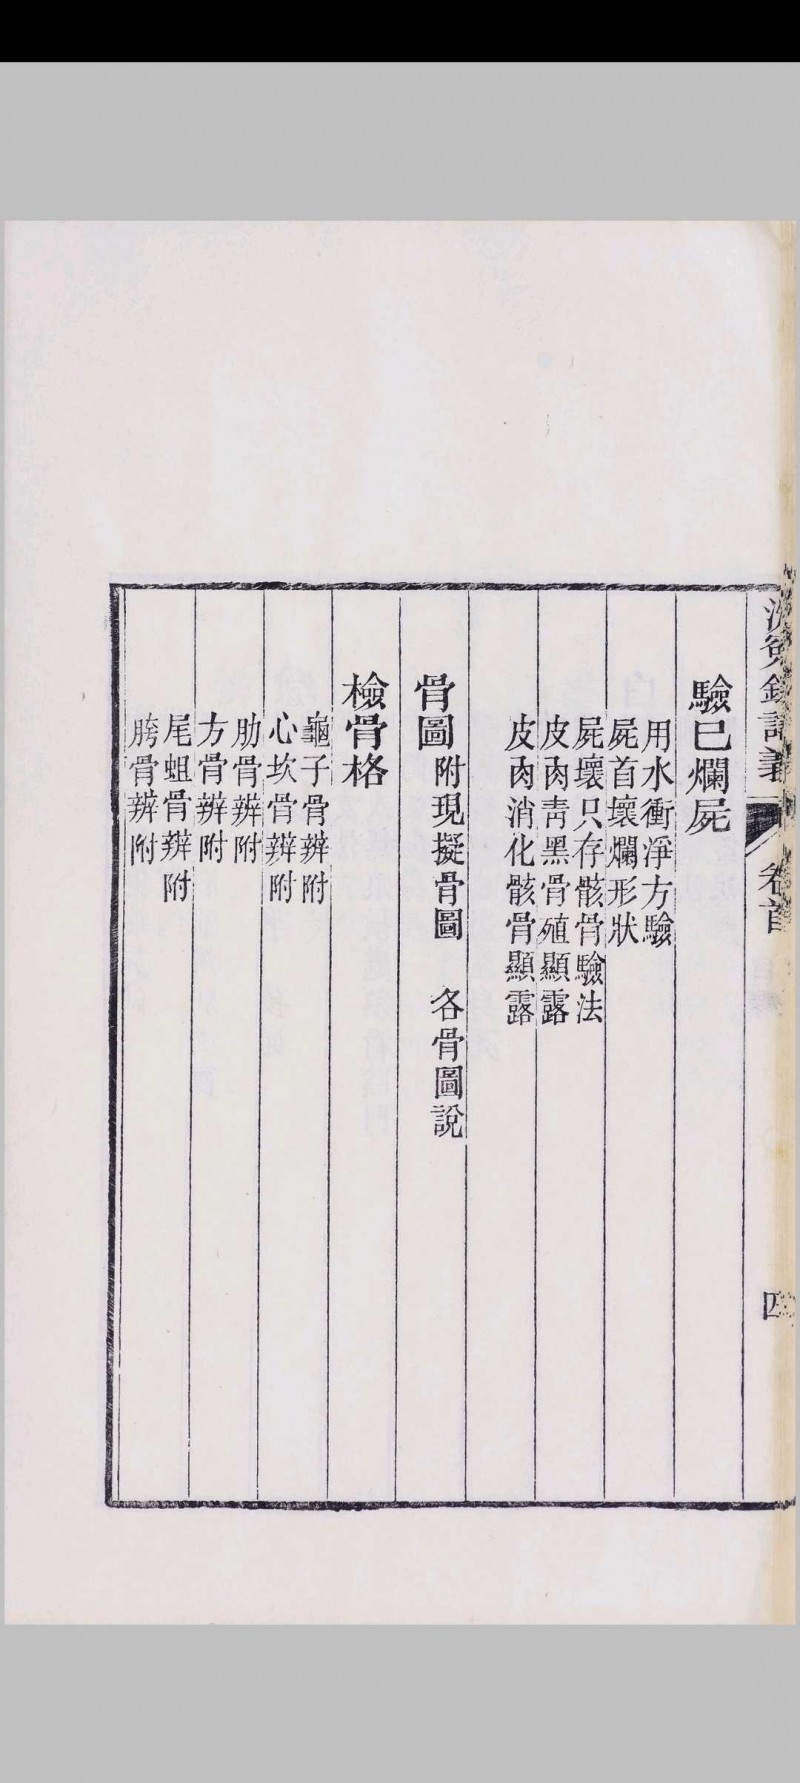 洗冤錄詳義 卷首 四
驗已爛屍
用水衝凈方驗
屍首壞爛形狀
屍壞只存骸骨驗法
皮肉靑黑骨殖顯露
皮肉消化骸骨顯露
骨圖 附現擬骨圖 各骨圖說
檢骨格
龜子骨辨附
心坎骨辨附
肋骨辨附
方骨辨附
尾蛆骨辨附
胯骨辨附